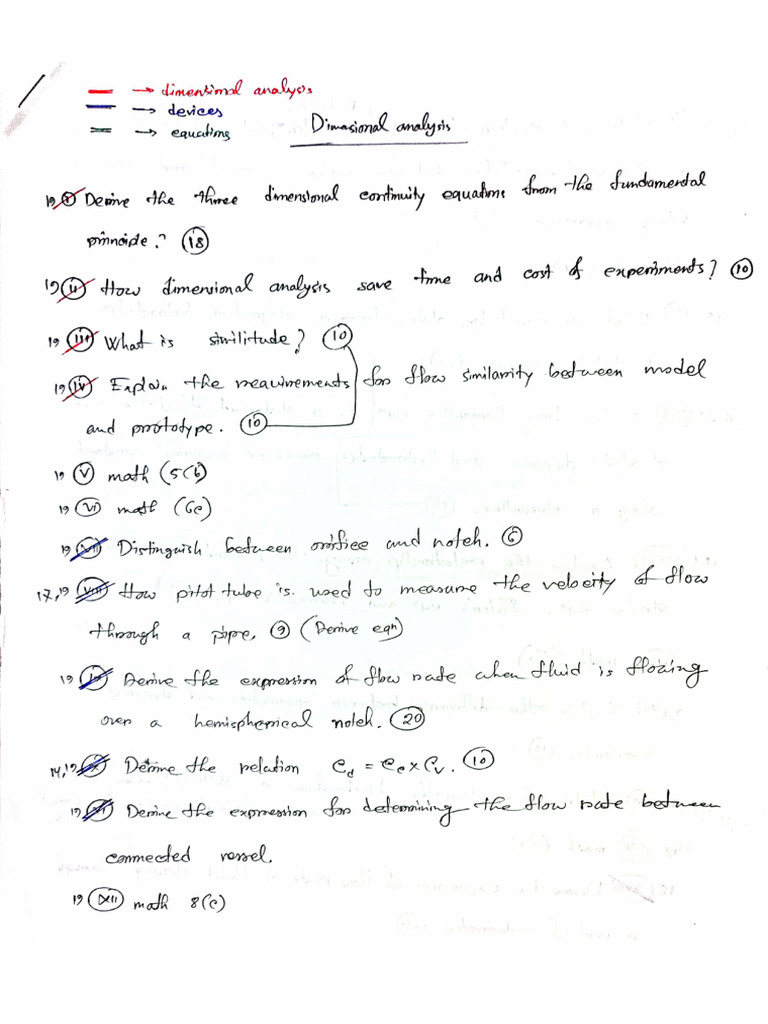 — → dimentional analysis
— → devices
— → equations
Dimasional analysis
19 (i) Derive the three dimensional continuity equations from the fundamental
principle? (18)
19 (ii) How dimensional analysis save time and cost of experiments? (10)
19 (iii) What is similitude? (10)
19 (iv) Explain the requirements for flow similarity between model
and prototype. (10)
19 (v) math (5(b)
19 (vi) math (6c)
19 (vii) Distinguish between orifice and notch. (6)
17,19 (viii) How pitot tube is used to measure the velocity of flow
through a pipe. (9) (Derive eqn)
19 (ix) Derive the expression of flow rate when fluid is flowing
over a hemispherical notch. (20)
14,19 (x) Derive the relation Cd = Cc × Cv. (10)
19 (xi) Derive the expression for determining the flow rate between
connected vessel.
19 (xii) math 8(c)